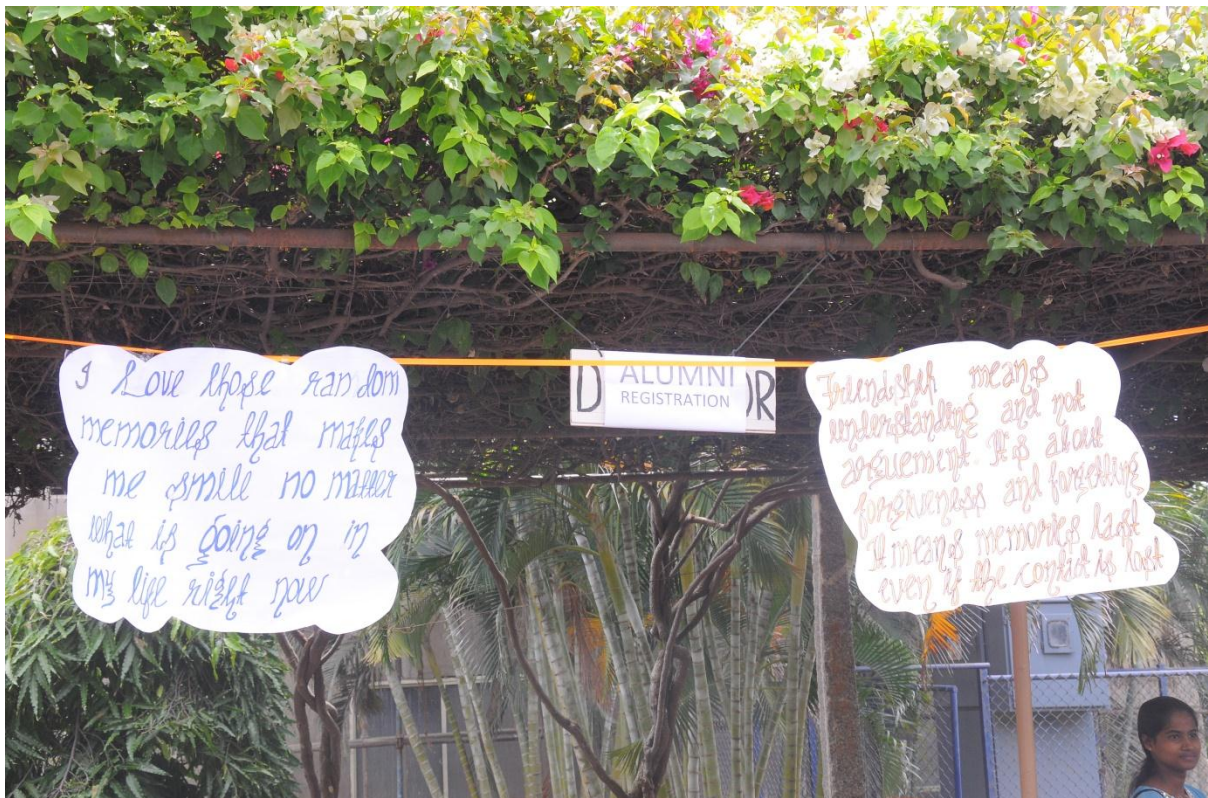 I Love those random
memories that makes
me smile no matter
what is going on in
my life right now
D
ALUMNI
REGISTRATION
OR
Friendship means
understanding and not
arguement. It is about
forgiveness and forgetting
It means memories last
even if the contact is lost